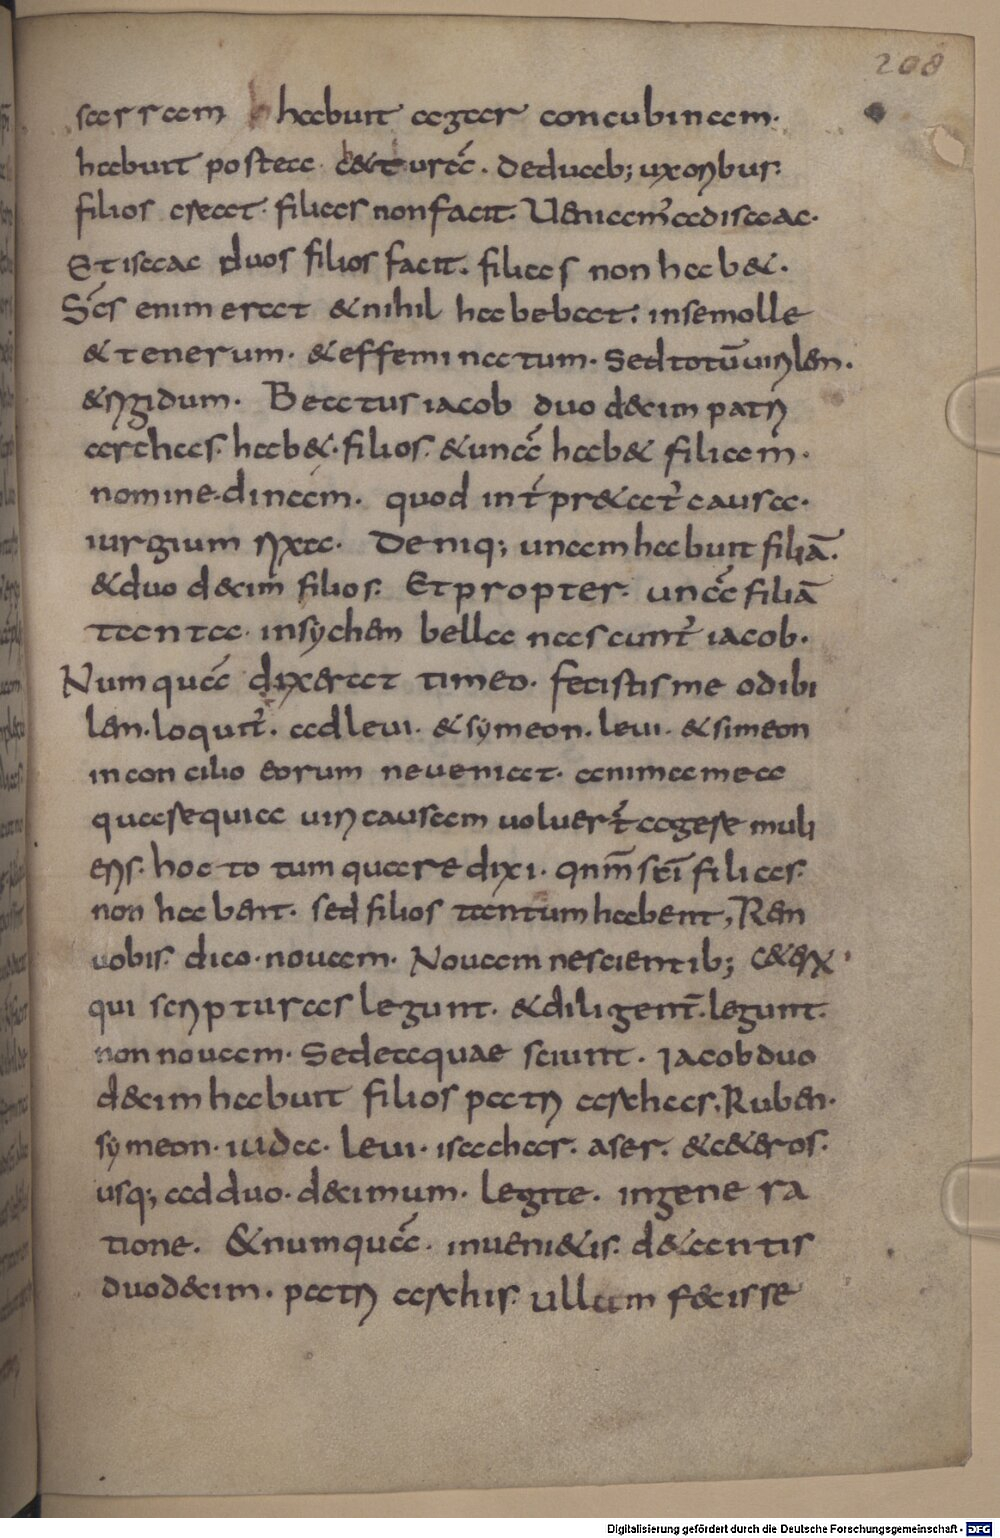 208
sarram habuit agar concubinam.
habuit postea c&turā. Deduab; uxoribus.
filios creat. filias non facit. Ueniam̄ adisaac.
Et isaac duos filios facit. filias non hab&.
Scs enim erat & nihil habebat. in se molle
& tenerum. & effeminatum. Sed totū uirilen.
& rigidum. Beatus iacob duodecim patri
archas. hab& filios. & unā hab& filiam.
nomine. dinam. quod int̄ pr&eat̄ causa.
iurgium rixa. Deniq; unam habuit filiā.
& duodecim filios. Et propter. unā filiā
tanta. in sychem bella nascunt̄ iacob.
Numquā dixerat timeo. fecistis me odibi
lem. loquit̄. ad leui. & symeon. leui. & simeon
in concilio eorum ne ueniat. anima mea
quasequia uiri causam uoluer̄t agere muli
eris. hoc totum quare dixi. qnm̄ sc̄i filias.
non habent. sed filios tantum habent, Rem
uobis. dico. nouam. Nouam nescientib; c&erx
qui scripturas legunt. & diligent̄. legunt.
non nouam. Sed eaquae sciunt. Iacob duo
decim habuit filios patri archas, Ruben.
symeon. iuda. leui. isachar. aser. & c&eros.
usq; ad duo. decimum. legite. ingene ra
tione. & numquā. inueni&is. d&antis
duodecim. patri archis. ullam fecisse
Digitalisierung gefördert durch die Deutsche Forschungsgemeinschaft - DFG